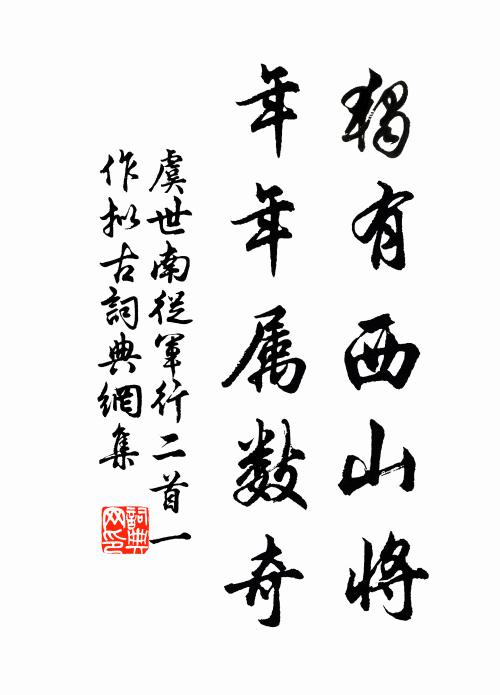 獨有西山將
年年属數奇
虞世南從軍行二首一
作拟古詞典網集
詞典網印